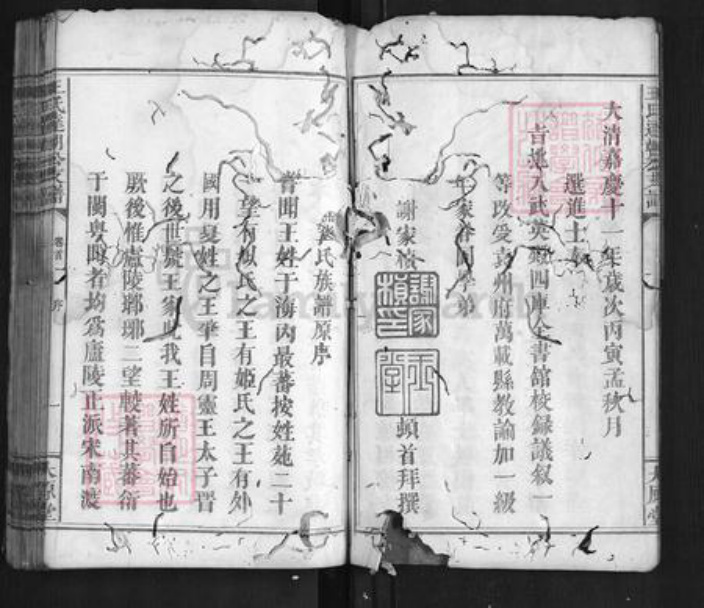 大清嘉慶十一年歲次丙寅孟秋月
選進士
吉挑入武英殿四庫全書館校錄議叙一
等改受袁州府萬載縣教諭加一級
年家眷同學弟
謝家楨
謝家楨印
頓首拜撰
王氏族譜原序
嘗聞王姓于海內最蕃按姓苑二十
一望有媯氏之王有姬氏之王有外
國用夏姓之王肇自周靈王太子晉
之後世號王家此我王姓所自始也
厥後惟盧陵瑯琊二望較著其蕃衍
于閩粵間者均為廬陵正派宋南渡
卷首
序
太原堂